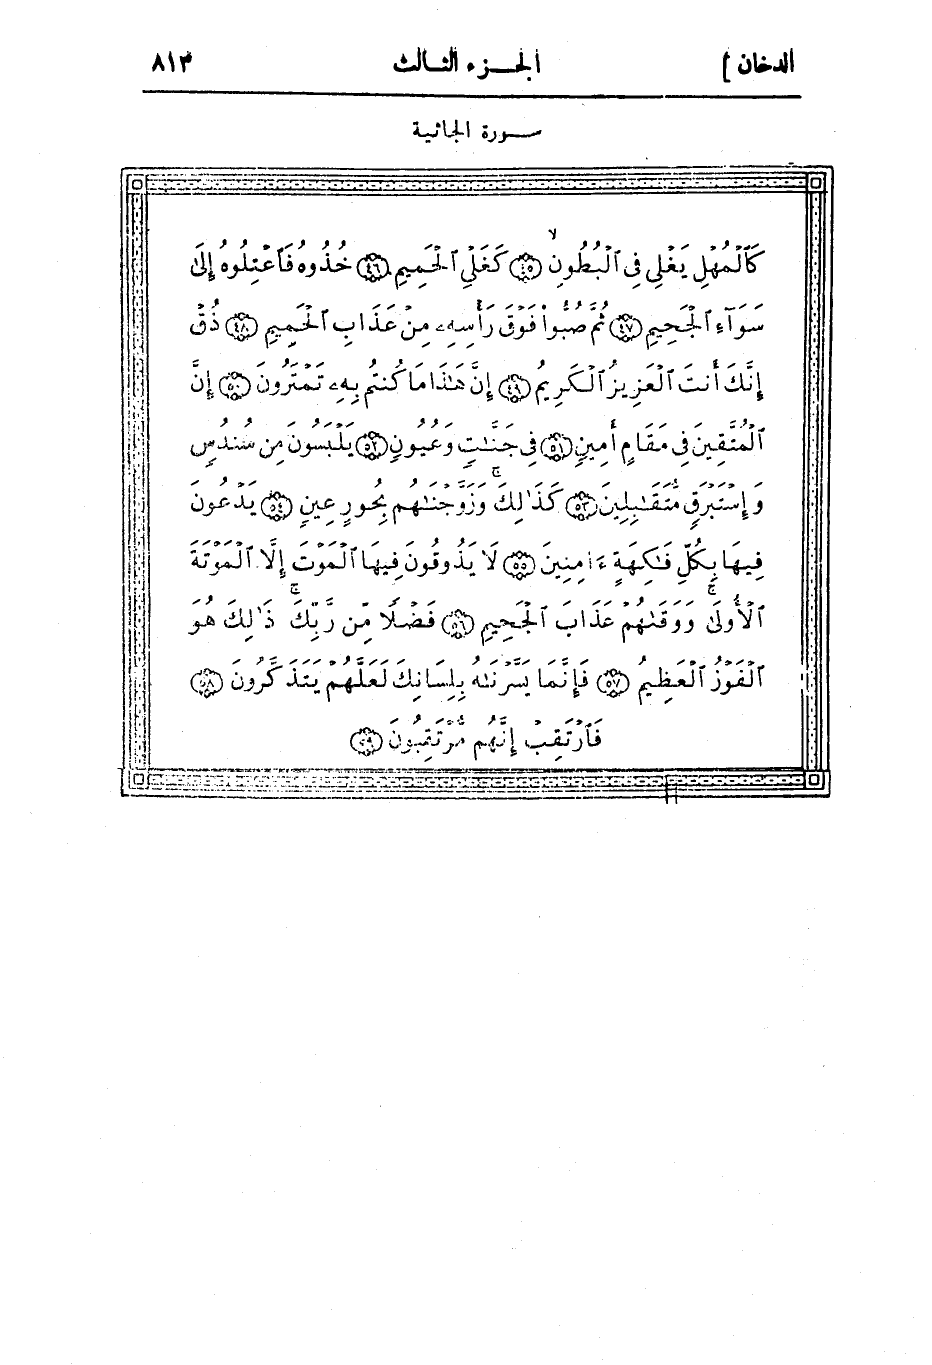 الدخان ]
الجزء الثالث
٨١٣
سورة الجاثية
كَٱلْمُهْلِ يَغْلِى فِى ٱلْبُطُونِ ۙ ﴿٤٥﴾ كَغَلْىِ ٱلْحَمِيمِ ﴿٤٦﴾ خُذُوهُ فَٱعْتِلُوهُ إِلَىٰ
سَوَآءِ ٱلْجَحِيمِ ﴿٤٧﴾ ثُمَّ صُبُّوا۟ فَوْقَ رَأْسِهِۦ مِنْ عَذَابِ ٱلْحَمِيمِ ﴿٤٨﴾ ذُقْ
إِنَّكَ أَنتَ ٱلْعَزِيزُ ٱلْكَرِيمُ ﴿٤٩﴾ إِنَّ هَٰذَا مَا كُنتُم بِهِۦ تَمْتَرُونَ ﴿٥٠﴾ إِنَّ
ٱلْمُتَّقِينَ فِى مَقَامٍ أَمِينٍ ﴿٥١﴾ فِى جَنَّٰتٍ وَعُيُونٍ ﴿٥٢﴾ يَلْبَسُونَ مِن سُندُسٍ
وَإِسْتَبْرَقٍ مُّتَقَٰبِلِينَ ﴿٥٣﴾ كَذَٰلِكَ ۚ وَزَوَّجْنَٰهُم بِحُورٍ عِينٍ ﴿٥٤﴾ يَدْعُونَ
فِيهَا بِكُلِّ فَٰكِهَةٍ ءَامِنِينَ ﴿٥٥﴾ لَا يَذُوقُونَ فِيهَا ٱلْمَوْتَ إِلَّا ٱلْمَوْتَةَ
ٱلْأُولَىٰ ۖ وَوَقَىٰهُمْ عَذَابَ ٱلْجَحِيمِ ﴿٥٦﴾ فَضْلًا مِّن رَّبِّكَ ۚ ذَٰلِكَ هُوَ
ٱلْفَوْزُ ٱلْعَظِيمُ ﴿٥٧﴾ فَإِنَّمَا يَسَّرْنَٰهُ بِلِسَانِكَ لَعَلَّهُمْ يَتَذَكَّرُونَ ﴿٥٨﴾
فَٱرْتَقِبْ إِنَّهُم مُّرْتَقِبُونَ ﴿٥٩﴾